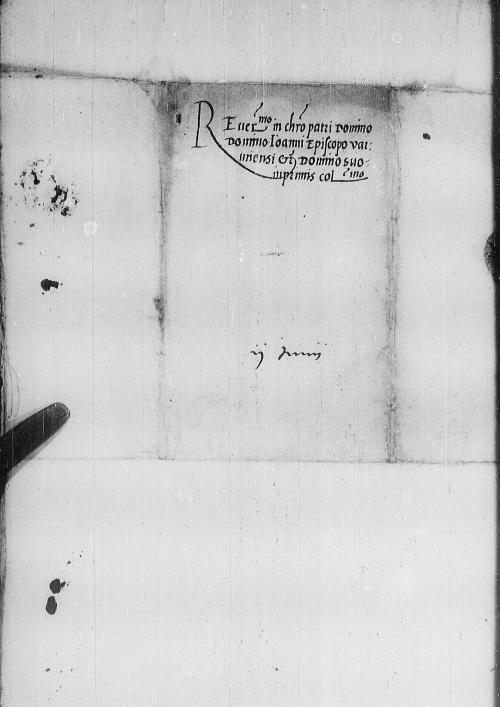 REuer^mo in chrō patri Domino
Domino Ioanni Episcopo var:
miensi et Domino suo
inprimis col^mo
ij Junij